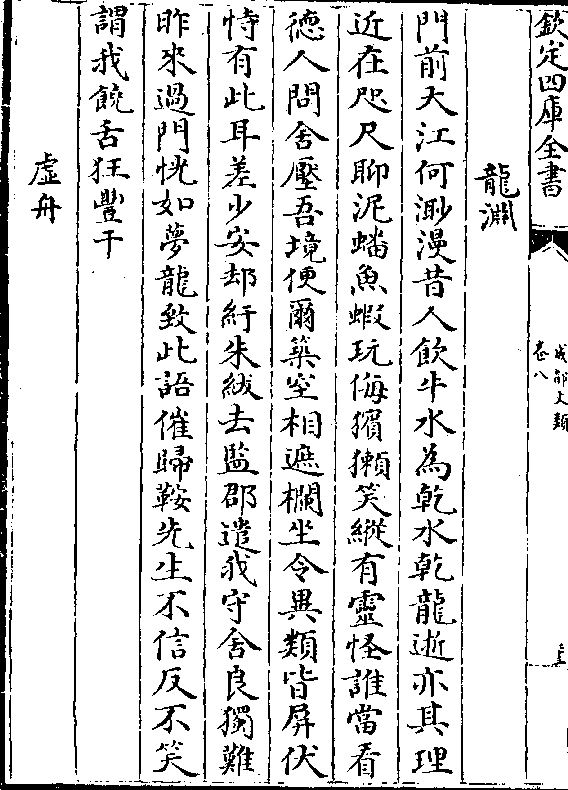 欽定四庫全書
成都文類
卷八
龍淵
門前大江何渺漫昔人飲牛水為乾水乾龍逝亦其理
近在咫尺聊泥蟠魚蝦玩侮獱獺笑縱有靈怪誰當看
德人問舍壓吾境便爾築室相遮欄坐令異類皆屏伏
恃有此耳差少安却紆朱紱去監郡遣我守舍良獨難
昨來過門恍如夢龍致此語催歸鞍先生不信反不笑
謂我饒舌狂豐干
虛舟